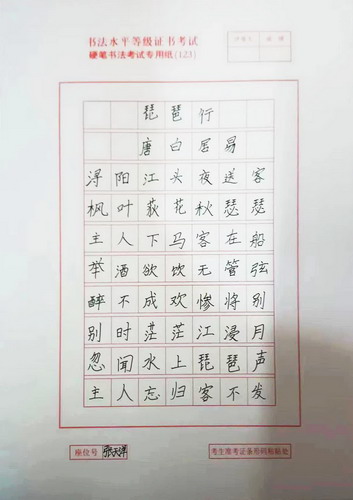 书法水平等级证书考试
硬笔书法考试专用纸(123)
琵琶行
唐白居易
浔阳江头夜送客
枫叶荻花秋瑟瑟
主人下马客在船
举酒欲饮无管弦
醉不成欢惨将别
别时茫茫江浸月
忽闻水上琵琶声
主人忘归客不发
座位号 张天洋
考生准考证条形码粘贴处